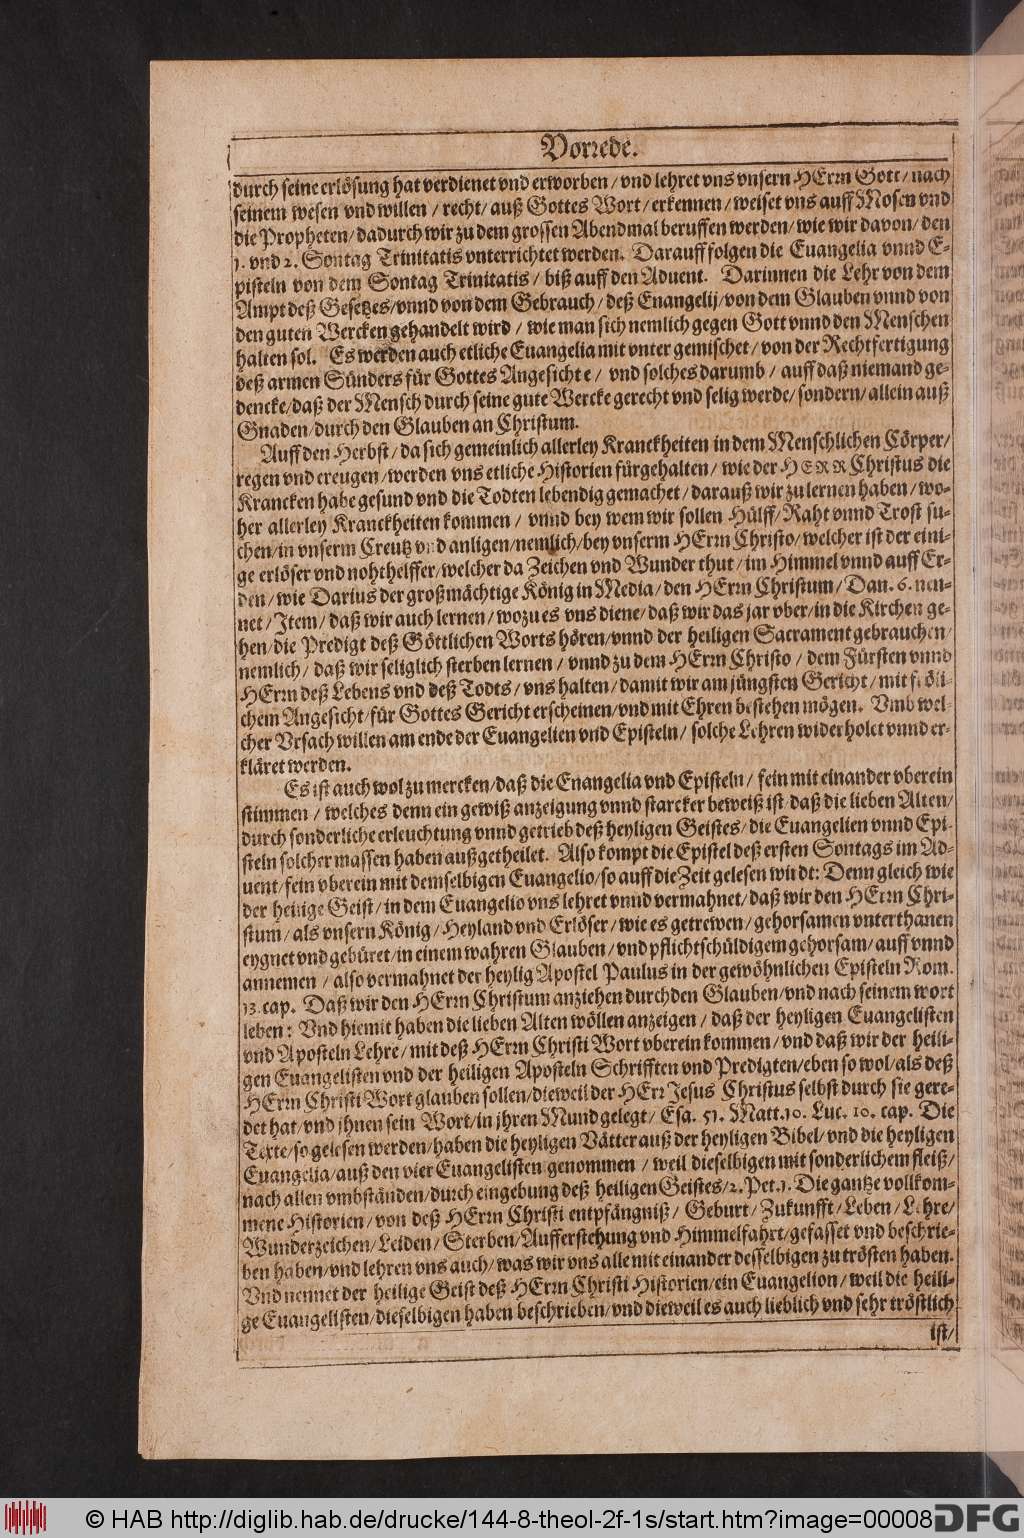 Vorrede.
durch seine erlösung hat verdienet vnd erworben / vnd lehret vns vnsern HErrn Gott / nach
seinem wesen vnd willen / recht / auß Gottes Wort / erkennen / weiset vns auff Mosen vnd
die Propheten / dadurch wir zu dem grossen Abendmal beruffen werden / wie wir davon / den
1. vnd 2. Sontag Trinitatis vnterrichtet werden. Darauff folgen die Euangelia vnnd E-
pisteln von dem Sontag Trinitatis / biß auff den Aduent. Darinnen die Lehr von dem
Ampt deß Gesetzes / vnnd von dem Gebrauch / deß Enangelij / von dem Glauben vnnd von
den guten Wercken gehandelt wird / wie man sich nemlich gegen Gott vnnd den Menschen
halten sol. Es werden auch etliche Euangelia mit vnter gemischet / von der Rechtfertigung
deß armen Sünders für Gottes Angesichte / vnd solches darumb / auff daß niemand ge-
dencke / daß der Mensch durch seine gute Wercke gerecht vnd selig werde / sondern / allein auß
Gnaden / durch den Glauben an Christum.
Auff den Herbst / da sich gemeinlich allerley Kranckheiten in dem Menschlichen Cörper /
regen vnd ereugen / werden vns etliche Historien fürgehalten / wie der HERR Christus die
Krancken habe gesund vnd die Todten lebendig gemachet / darauß wir zu lernen haben / wo-
her allerley Kranckheiten kommen / vnnd bey wem wir sollen Hülff / Raht vnnd Trost su-
chen / in vnserm Creutz vnd anligen / nemlich / bey vnserm HErrn Christo / welcher ist der eini-
ge erlöser vnd nohthelffer / welcher da Zeichen vnd Wunder thut / im Himmel vnnd auff Er-
den / wie Darius der großmächtige König in Media / den HErrn Christum / Dan. 6. nen-
net / Item / daß wir auch lernen / wozu es vns diene / daß wir das jar vber / in die Kirchen ge-
hen / die Predigt deß Göttlichen Worts hören / vnnd der heiligen Sacrament gebrauchen /
nemlich / daß wir seliglich sterben lernen / vnnd zu dem HErrn Christo / dem Fürsten vnnd
HErrn deß Lebens vnd deß Todts / vns halten / damit wir am jüngsten Gericht / mit fröli-
chem Angesicht / für Gottes Gericht erscheinen / vnd mit Ehren bestehen mögen. Vmb wel-
cher Vrsach willen am ende der Euangelien vnd Episteln / solche Lehren widerholet vnnd er-
kläret werden.
Es ist auch wol zu mercken / daß die Enangelia vnd Episteln / fein mit einander vberein
stimmen / welches denn ein gewiß anzeigung vnnd starcker beweiß ist / daß die lieben Alten /
durch sonderliche erleuchtung vnnd getrieb deß heyligen Geistes / die Euangelien vnnd Epi-
steln solcher massen haben außgetheilet. Also kompt die Epistel deß ersten Sontags im Ad-
uent / fein vberein mit demselbigen Euangelio / so auff die Zeit gelesen wirdt: Denn gleich wie
der heilige Geist / in dem Euangelio vns lehret vnnd vermahnet / daß wir den HErrn Chri-
stum / als vnsern König / Heyland vnd Erlöser / wie es getrewen / gehorsamen vnterthanen
eygnet vnd gebüret / in einem wahren Glauben / vnd pflichtschüldigem gehorsam / auff vnnd
annemen / also vermahnet der heylig Apostel Paulus in der gewöhnlichen Episteln Rom.
13. cap. Daß wir den HErrn Christum anziehen durch den Glauben / vnd nach seinem wort
leben: Vnd hiemit haben die lieben Alten wöllen anzeigen / daß der heyligen Euangelisten
vnd Aposteln Lehre / mit deß HErrn Christi Wort vberein kommen / vnd daß wir der heili-
gen Euangelisten vnd der heiligen Aposteln Schrifften vnd Predigten / eben so wol / als deß
HErrn Christi Wort glauben sollen / dieweil der HErr Jesus Christus selbst durch sie gere-
det hat / vnd jhnen sein Wort / in jhren Mund gelegt / Esa. 51. Matt. 10. Luc. 10. cap. Die
Texte / so gelesen werden / haben die heyligen Vätter auß der heyligen Bibel / vnd die heyligen
Euangelia / auß den vier Euangelisten genommen / weil dieselbigen mit sonderlichem fleiß /
nach allen vmbständen / durch eingebung deß heiligen Geistes / 2. Pet. 1. Die gantze vollkom-
mene Historien / von deß HErrn Christi entpfängniß / Geburt / Zukunfft / Leben / Lehre /
Wunderzeichen / Leiden / Sterben / Aufferstehung vnd Himmelfahrt / gefasset vnd beschrie-
ben haben / vnd lehren vns auch / was wir vns alle mit einander desselbigen zu trösten haben.
Vnd nennet der heilige Geist deß HErrn Christi Historien / ein Euangelion / weil die heili-
ge Euangelisten / dieselbigen haben beschrieben / vnd dieweil es auch lieblich vnd sehr tröstlich
ist /
© HAB http://diglib.hab.de/drucke/144-8-theol-2f-1s/start.htm?image=00008
DFG